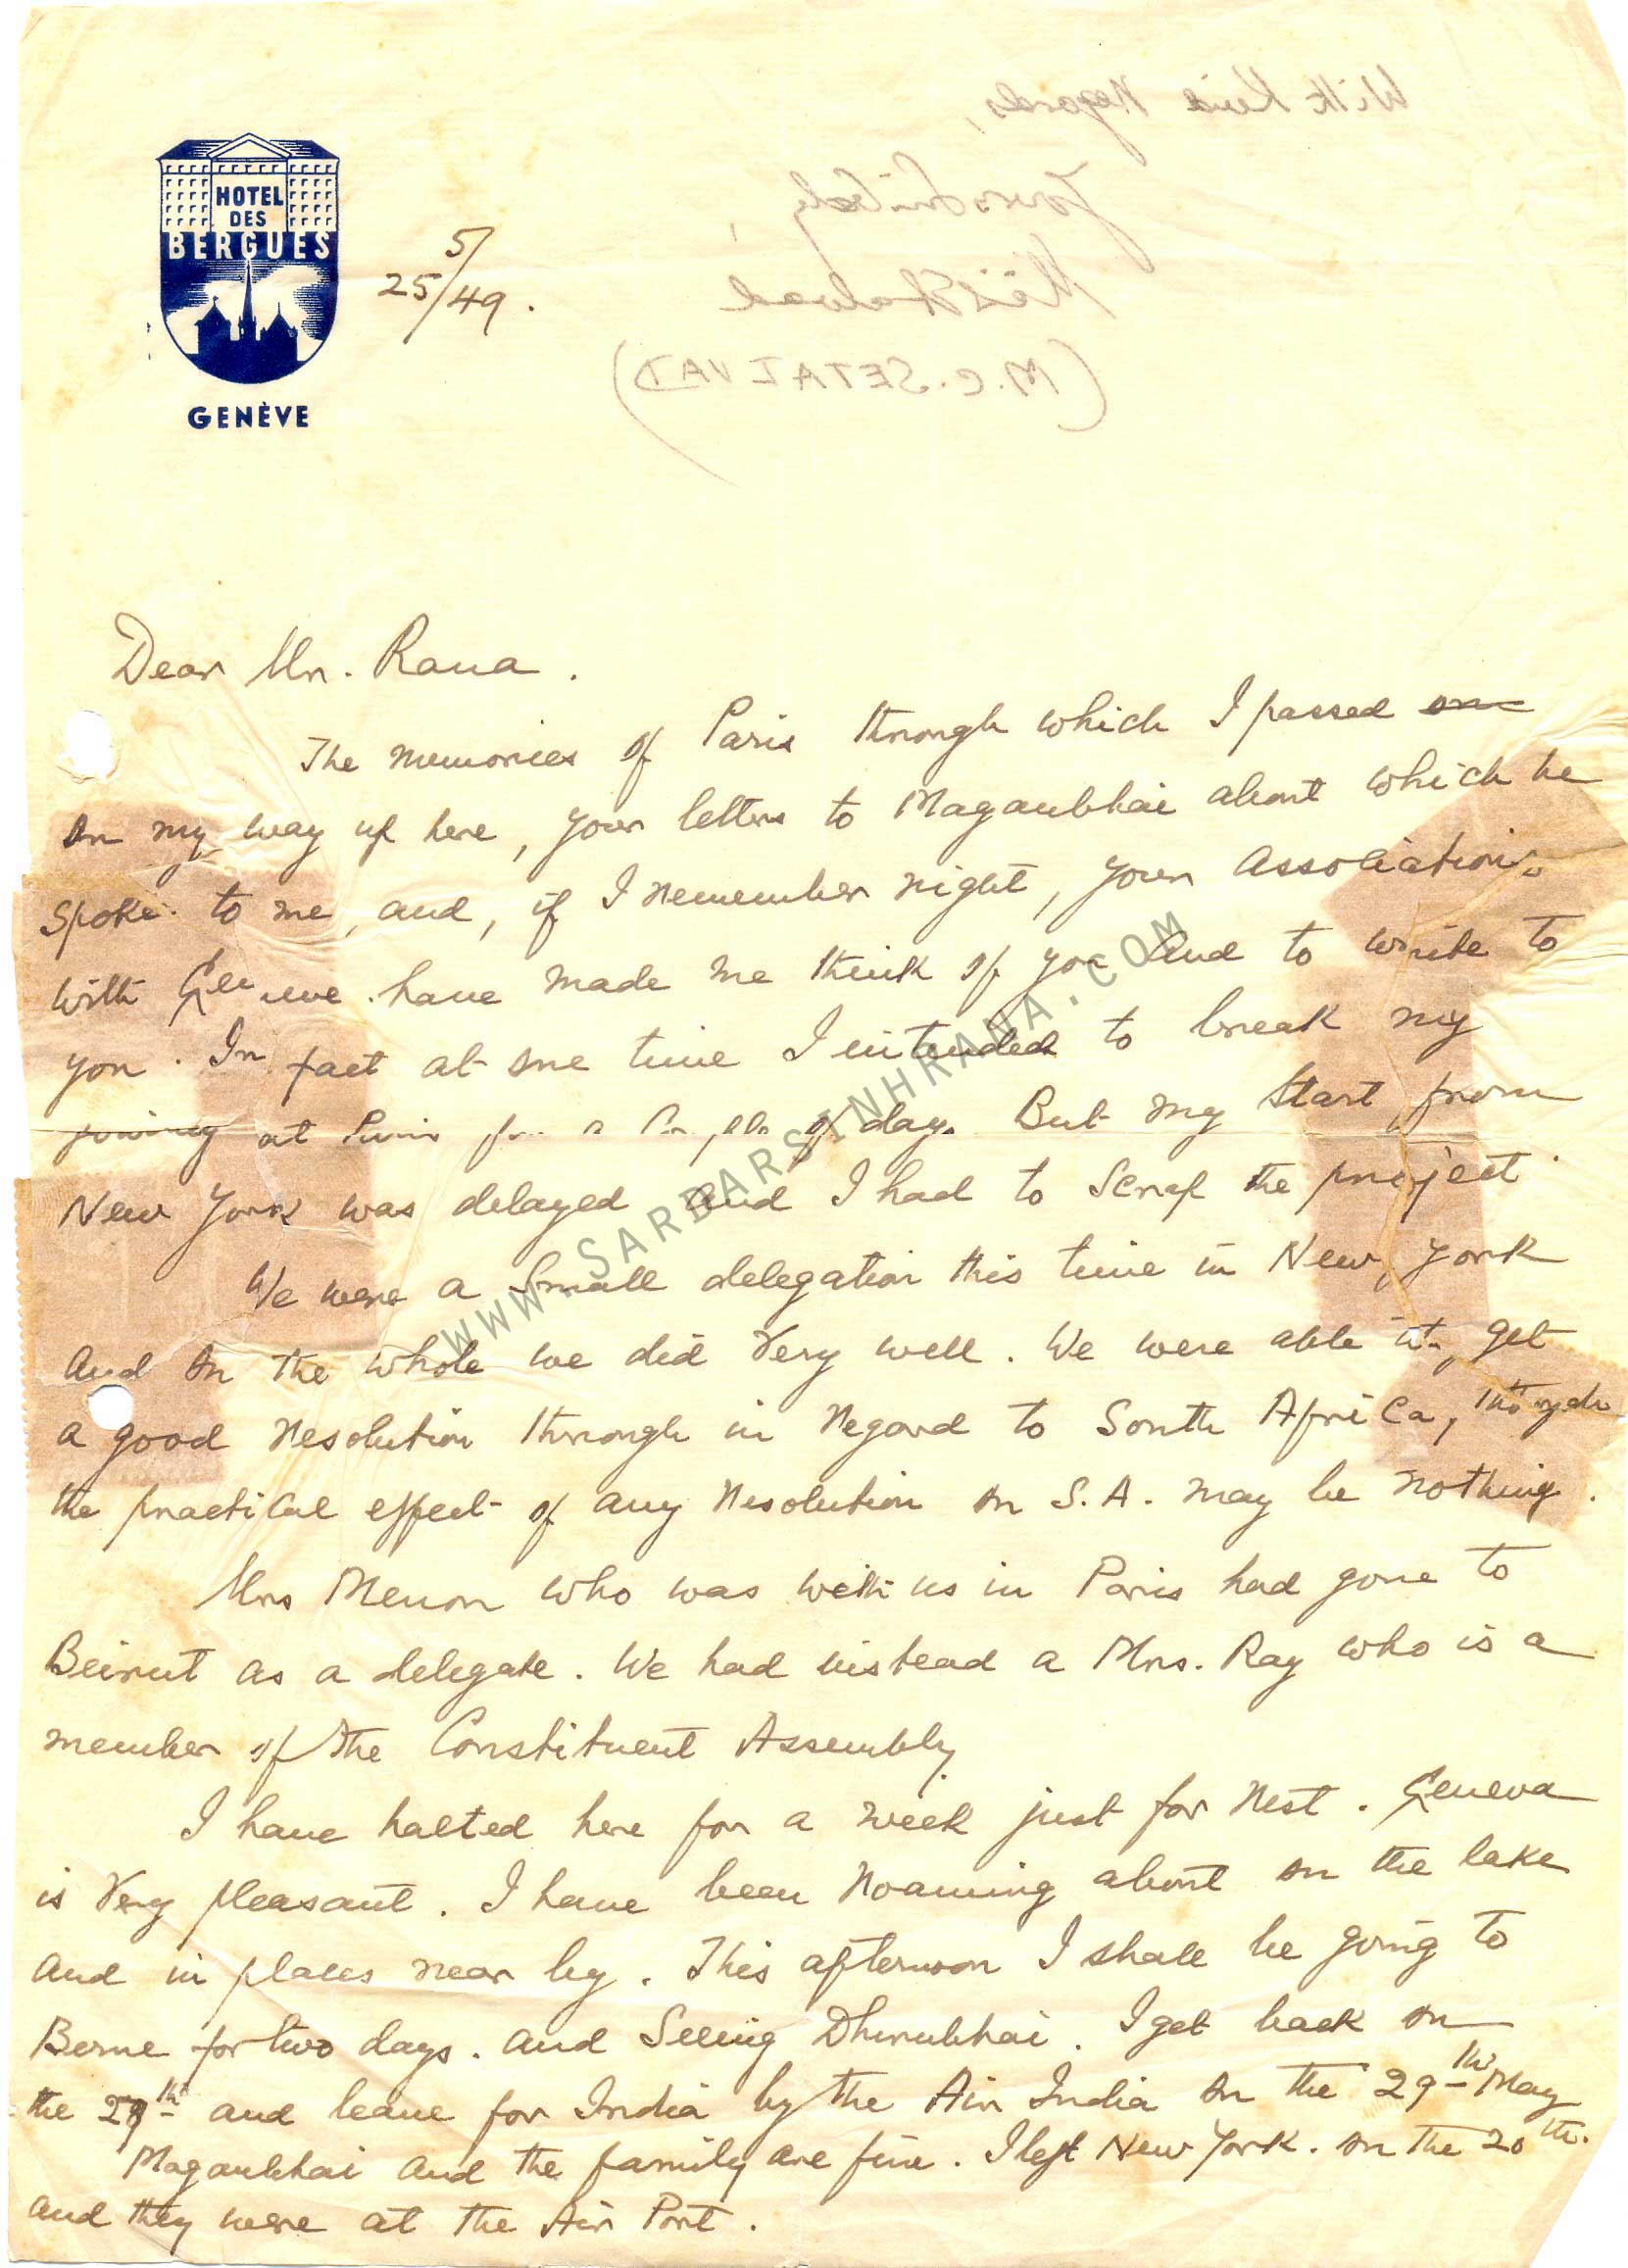 HOTEL
DES
BERGUES
GENÈVE
25/5/49.
With Kind Regards,
Yours Sincerely,
(M.C. SETALVAD)
Dear Mr. Rana.
The memories of Paris through which I passed on
on my way up here, your letters to Maganbhai about which he
spoke to me, and, if I remember right, your associations
with Geneve have made me think of you and to write to
you. In fact at one time I intended to break my
journey at Paris for a couple of days. But my start from
New York was delayed and I had to scrap the project
We were a small delegation this time in New York
and on the whole we did very well. We were able to get
a good resolution through in regard to South Africa, though
the practical effect of any resolution on S.A. may be nothing.
Mrs Menon who was with us in Paris had gone to
Beirut as a delegate. We had instead a Mrs. Ray who is a
member of the Constituent Assembly.
I have halted here for a week just for rest. Geneva
is very pleasant. I have been roaming about on the lake
and in places near by. This afternoon I shall be going to
Berne for two days. and seeing Dhirubhai. I get back on
the th and leave for India by the Air India on the 29th May
Maganbhai and the family are fine. I left New York. on the 20th.
and they were at the Air Port.
WWW.SARDARSINHRANA.COM